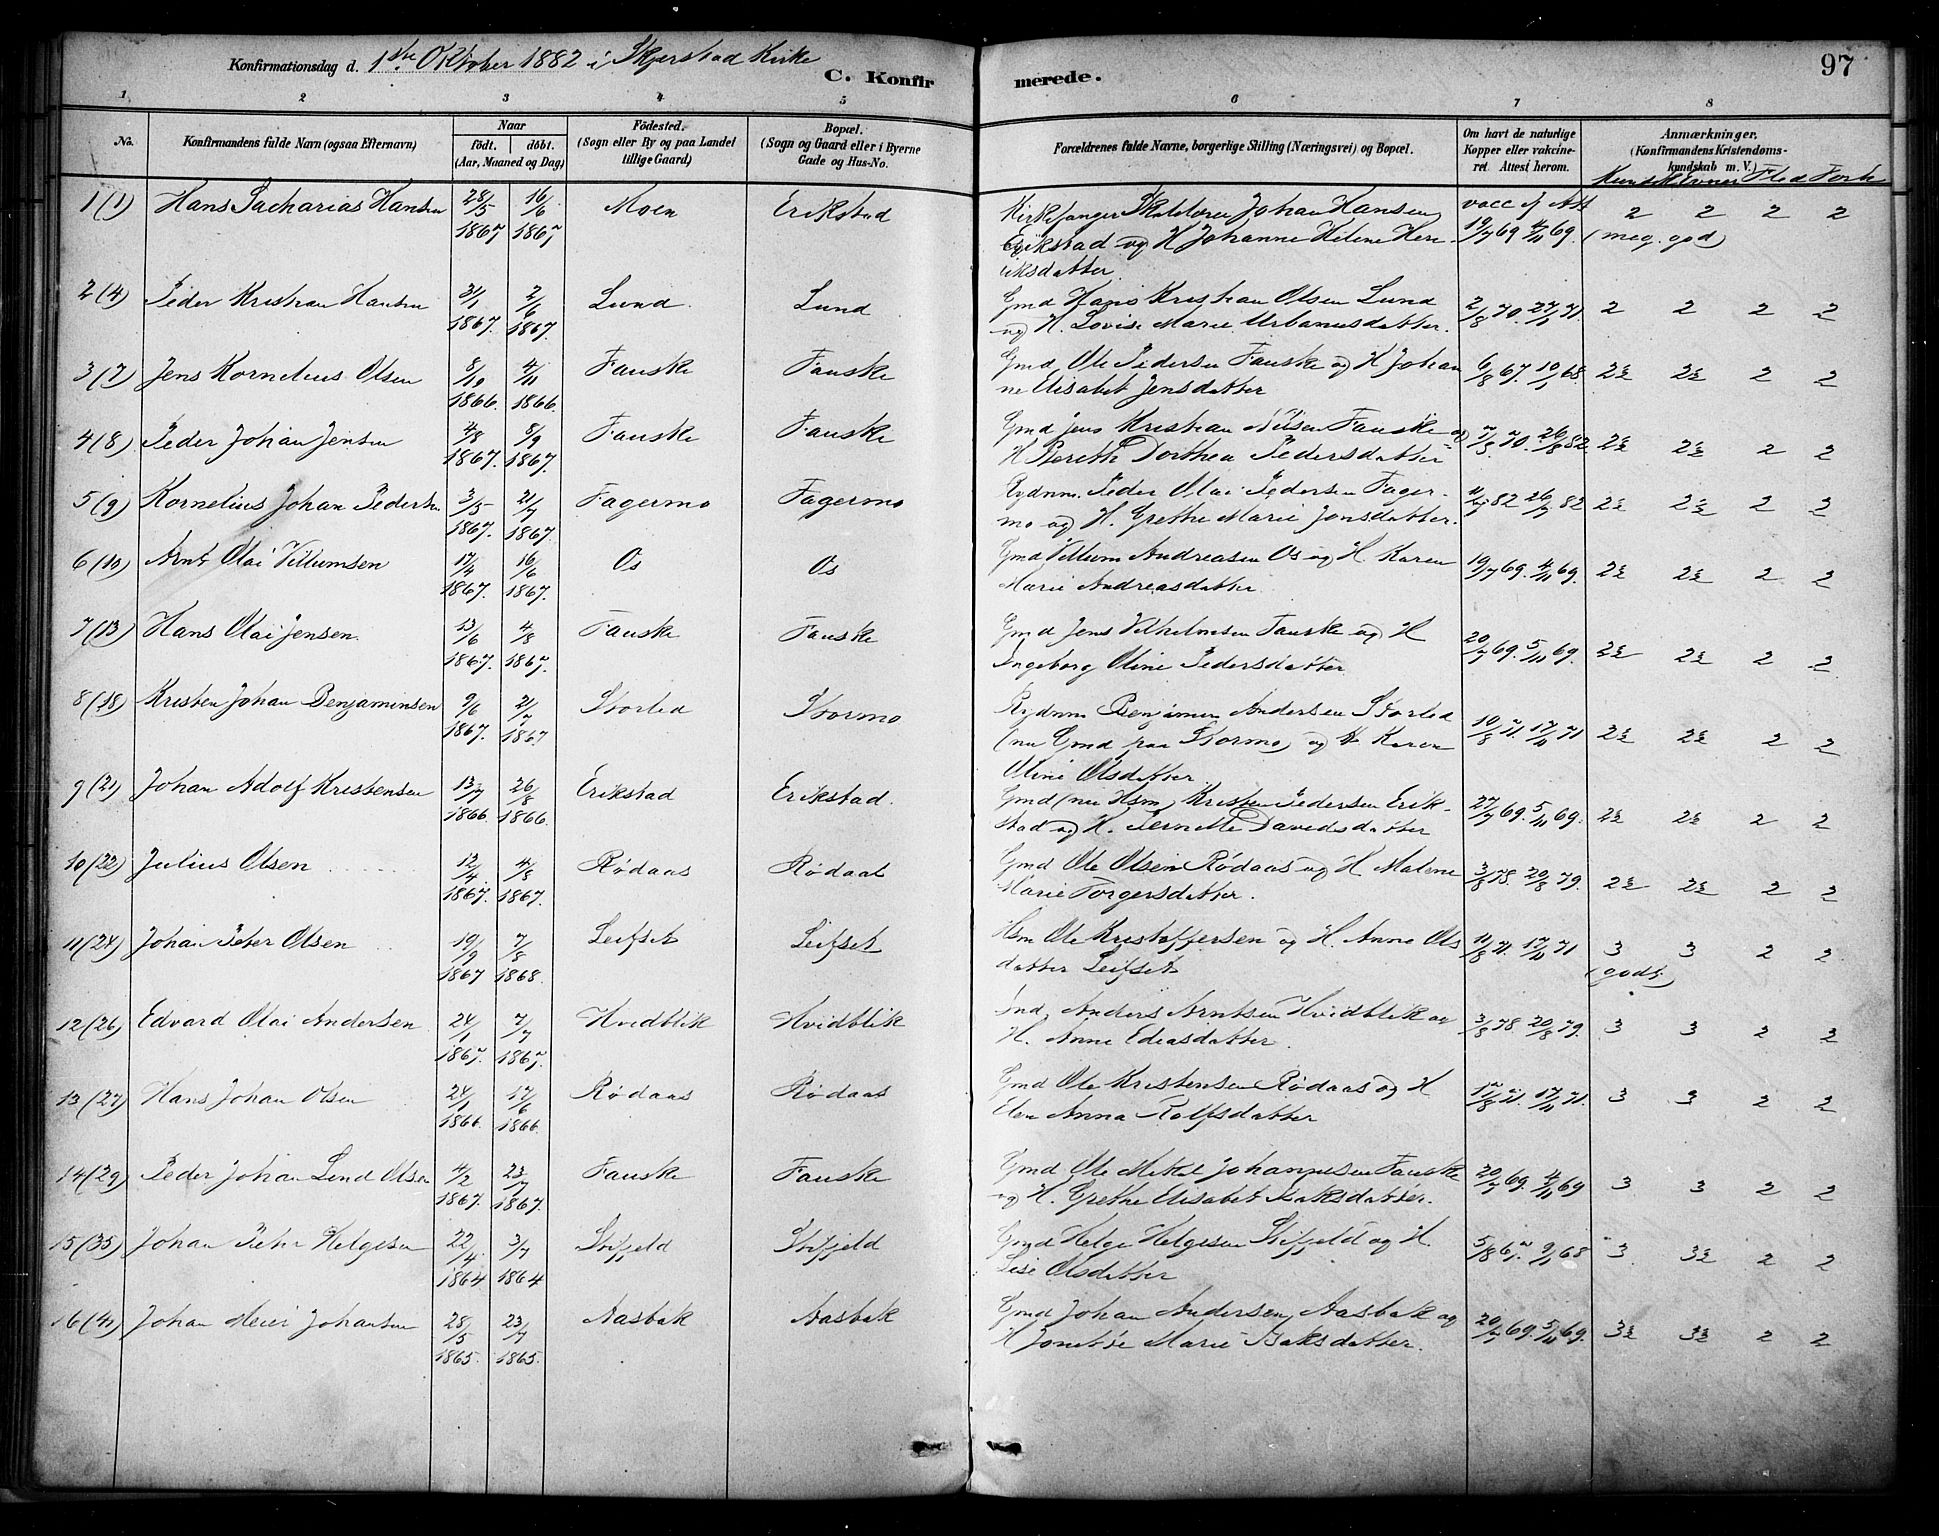 Konfirmationsdag d. 1ste Oktober 1882 i Skjerstad Kirke
C. Konfirmerede.
97
1 2 3 4 5 6 7 8
No.
Konfirmandens fulde Navn (ogsaa Efternavn)
Naar
födt. döbt.
(Aar, Maaned og Dag)
Födested.
(Sogn eller By og paa Landet
tillige Gaard)
Bopæl.
(Sogn og Gaard eller i Byerne
Gade og Hus-No.
Forældrenes fulde Navne, borgerlige Stilling (Næringsvei) og Bopæl.
Om havt de naturlige
Kopper eller vakcine-
ret Attest herom.
Anmærkninger.
(Konfirmandens Kristendoms-
kundskab m. V.)
Kundsk Evner Flid Forh
1 (1) Hans Zacharias Hansen 28/5 1867 16/6 1867 Moen Erikstad Kirkesanger Skolelærer Johan Hansen
Erikstad og H Johanne Helene Hen-
riksdatter vacc if Att 19/7 69 4/11 69. 2 2 2 2
(meg. god)
2 (4) Peder Kristian Hansen 31/1 1867. 2/6 1867. Lund Lund Gmd Hans Kristian Olsen Lund
og H. Lovise Marie Urbanusdatter. 2/8 70. 27/1 71. 2 2 2 2
3 (7) Jens Kornelius Olsen 8/10 1866. 4/11 1866. Fauske Fauske Gmd Ole Pedersen Fauske og H Johan
ne Elisabet Jensdatter 6/8 67. 10/1 68 2½ 2½ 2 2
4 (8) Peder Johan Jensen 4/8 1867. 8/9 1867. Fauske Fauske Gmd Jens Kristian Nilsen Fauske og
H Bereth Dorthea Pedersdatter 7/8 70. 26/8 82. 2½ 2½ 2 2
5 (9) Kornelius Johan Pedersen 3/5 1867. 21/7 1867. Fagermo Fagermo Rydnm. Peder Olai Pedersen Fager-
mo og H. Grethe Marie Jonsdatter. 82 26/7 82 2½ 2½ 2 2
6 (10) Arnt Olai Villumsen 17/4 1867. 16/6 1867. Os Os Gmd Villum Andreasen Os og H. Karen
Marie Andreasdatter. 19/7 69. 4/11 69. 2½ 2½ 2 2
7 (13) Hans Olai Jensen. 13/6 1867. 4/8 1867. Fauske Fauske Gmd Jens Vilhelmsen Fauske og H
Ingeborg Oline Pedersdatter 20/7 69. 5/11 69. 2½ 2½ 2 2
8 (18) Kristen Johan Benjaminsen 9/6 1867. 21/7 1867 Storlid Stormo Rydnm Benjamin Andersen Storlid
(nu Gmd paa Stormo) og H Karen
Oline Olsdatter. 10/8 71. 17/11 71 2½ 2½ 2 2
9 (21) Johan Adolf Kristensen 13/7 1866. 26/8 1866. Erikstad Erikstad. Gmd (nu Hsm) Kristen Pedersen Erik-
stad og H. Pernelle Davidsdatter 27/7 69. 5/11 69. 2½ 2½ 2 2
10 (22) Julius Olsen 12/4 1867. 4/8 1867. Rødaas Rødaas Gmd Ole Olsen Rødaas og H Malene
Marie Torgersdatter. 3/8 78. 20/8 79. 2½ 2½ 2 2
11 (24) Johan Peter Olsen 19/9 1867 7/8 1868. Leifset Leifset Hsm Ole Kristoffersen og H. Anne Ols
datter Leifset 11/8 71. 17/11 71 3 3 2 2
(godt)
12 (26) Edvard Olai Andersen 24/1 1867. 7/7 1867. Hvidblik Hvidblik Ind. Anders Arntsen Hvidblik og
H. Anne Ediasdatter. 3/8 78. 20/8 79. 3 3 2 2
13 (27) Hans Johan Olsen 24/1 1866. 17/6 1866. Rødaas Rødaas Gmd Ole Kristensen Rødaas og H
Elen Anna Rolfsdatter 17/8 71. 17/11 71. 3 3 2 2
14 (29) Peder Johan Lund Olsen 4/2 1867. 23/7 1867. Fauske Fauske Gmd Ole Mikal Johannesen Fauske
og H. Grethe Elisabet Isaksdatter. 20/7 69. 4/11 69 3 3 2 2
15 (35) Johan Peter Helgesen 22/4 1864 3/7 1864 Stifjeld Stifjeld Gmd Helge Helgesen Stifjeld og H.
Lise Olsdatter 5/8 67. 9/1 68 3. 3½ 2 2
16 (41) Johan Meier Johansen 28/5 1865. 23/7 1865. Aasbak Aasbak Gmd Johan Andersen Aasbak og
H Jonette Marie Isaksdatter. 20/7 69. 5/11 69. 3½ 3½ 2 2